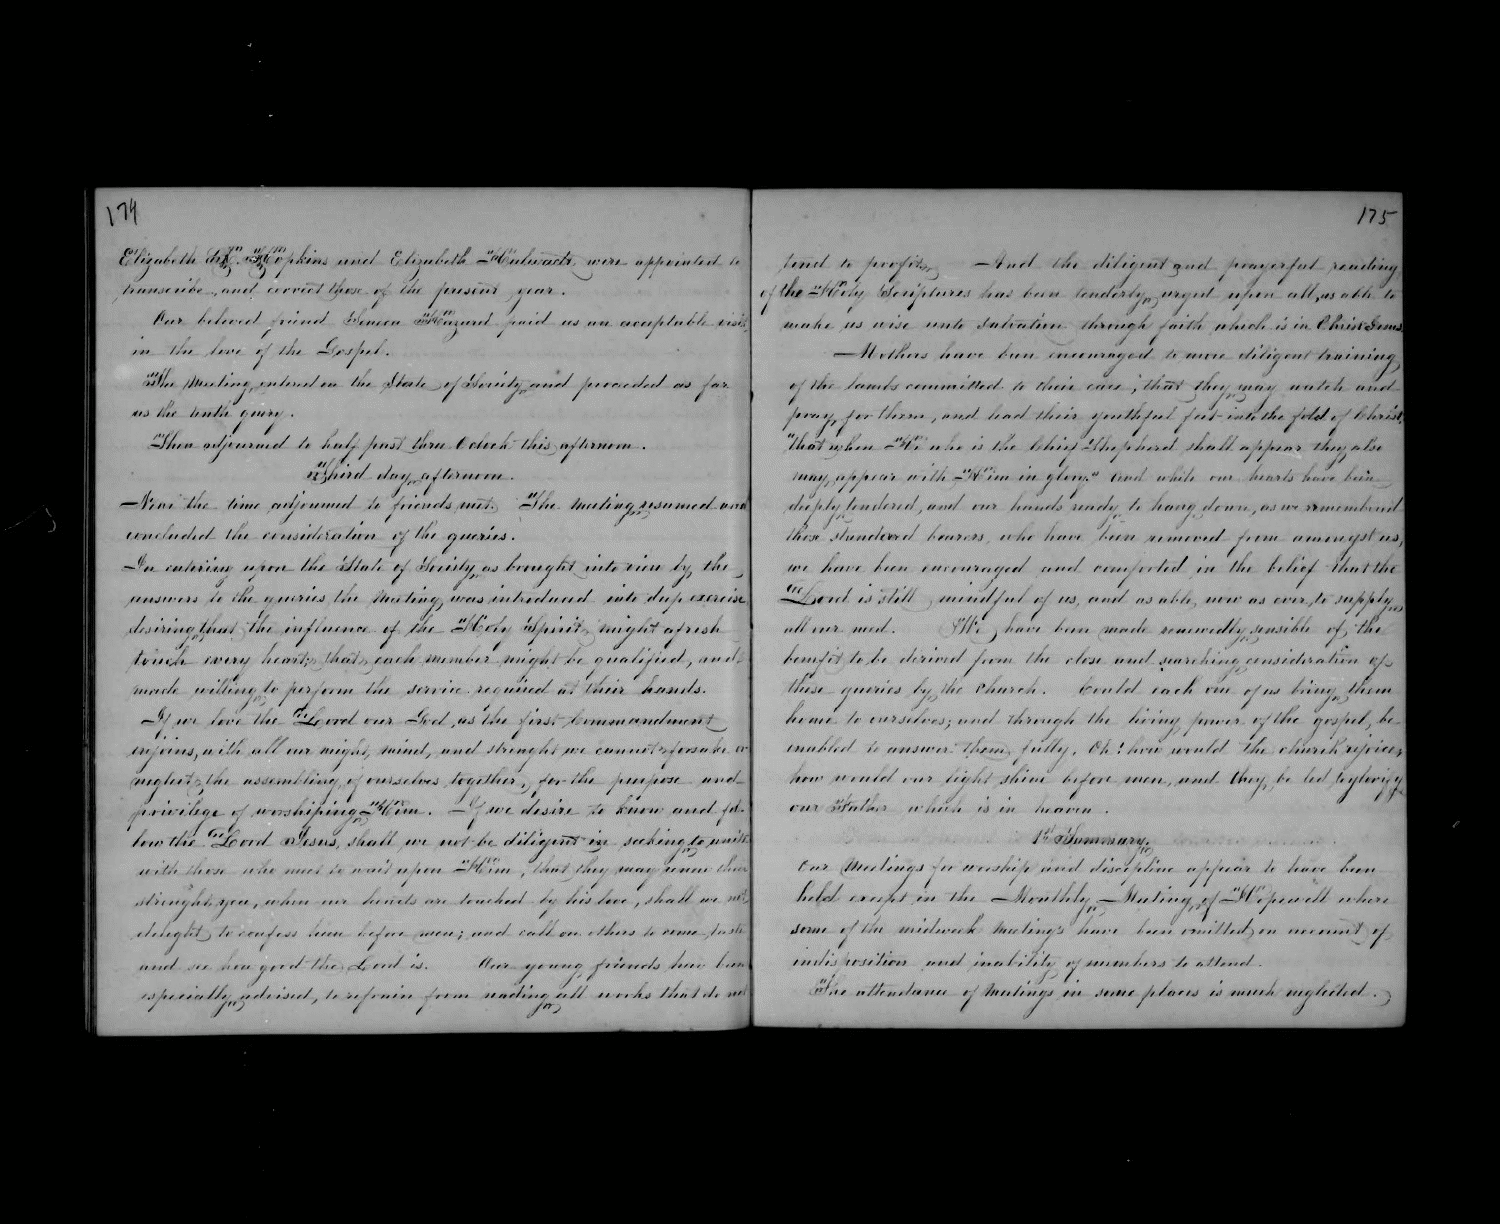 174
Elizabeth H. Hopkins and Elizabeth were appointed to
transcribe, and correct those of the present year.
Our beloved friend Hazard paid us an acceptable visit,
in the love of the Gospel.
The Meeting entered on the State of Society and proceeded as far
as the tenth query.
Then adjourned to half past three Oclock this afternoon.
Third day afternoon.
Near the time adjourned to friends met. The Meeting resumed and
concluded the consideration of the queries.
In entering upon the State of Society, as brought into view by the
answers to the queries the Meeting was introduced into deep exercise
desiring that the influence of the Holy Spirit might afresh
touch every heart, that each member might be qualified, and
made willing to perform the service required at their hands.
If we love the Lord our God, as the first Commandment
enjoins, with all our might, mind, and strenght we cannot forsake or
neglect, the assembling of ourselves together, for the purpose and
privilege of worshiping Him. If we desire to know and fol-
low the Lord Jesus, shall we not be diligent in seeking to unite
with those who meet to wait upon Him, that they may renew their
strenght, yea, when our hearts are touched by his love, shall we not
delight to confess him before men; and call on others to come, taste
and see how good the Lord is. Our young friends have been
especially advised, to refrain from reading all works that do not
175
tend to profit. And the diligent and prayerful reading
of the Holy Scriptures has been tenderly urged upon all, as able to
make us wise unto salvation through faith which is in Christ Jesus.
Mothers have been encouraged to more diligent training
of the lambs committed to their care, that they may watch and
pray, for them, and lead their youthful feet into the fold of Christ,
"that when He who is the Chief Shepherd shall appear they also
may appear with Him in glory." And while our hearts have been
deeply tendered, and our hands ready to hang down, as we remembered
those standard bearers, who have been removed from amongst us,
we have been encouraged and comforted in the belief that the
Lord is still mindful of us, and as able, now as ever, to supply
all our need. We have been made renewedly sensible of the
benefit to be derived from the close and searching consideration of
these queries by the church. Could each one of us bring them
home to ourselves; and through the living power of the gospel, be
enabled to answer them fully, Oh! how would the church rejoice,
how would our light shine before men, and they be led to glorify
our Father which is in heaven.
1st Summary.
Our Meetings for worship and discipline appear to have been
held except in the Monthly Meeting of Hopewell where
some of the midweek Meetings have been omitted on account of
indisposition and inability of members to attend.
The attendance of Meetings in some places is much neglected.